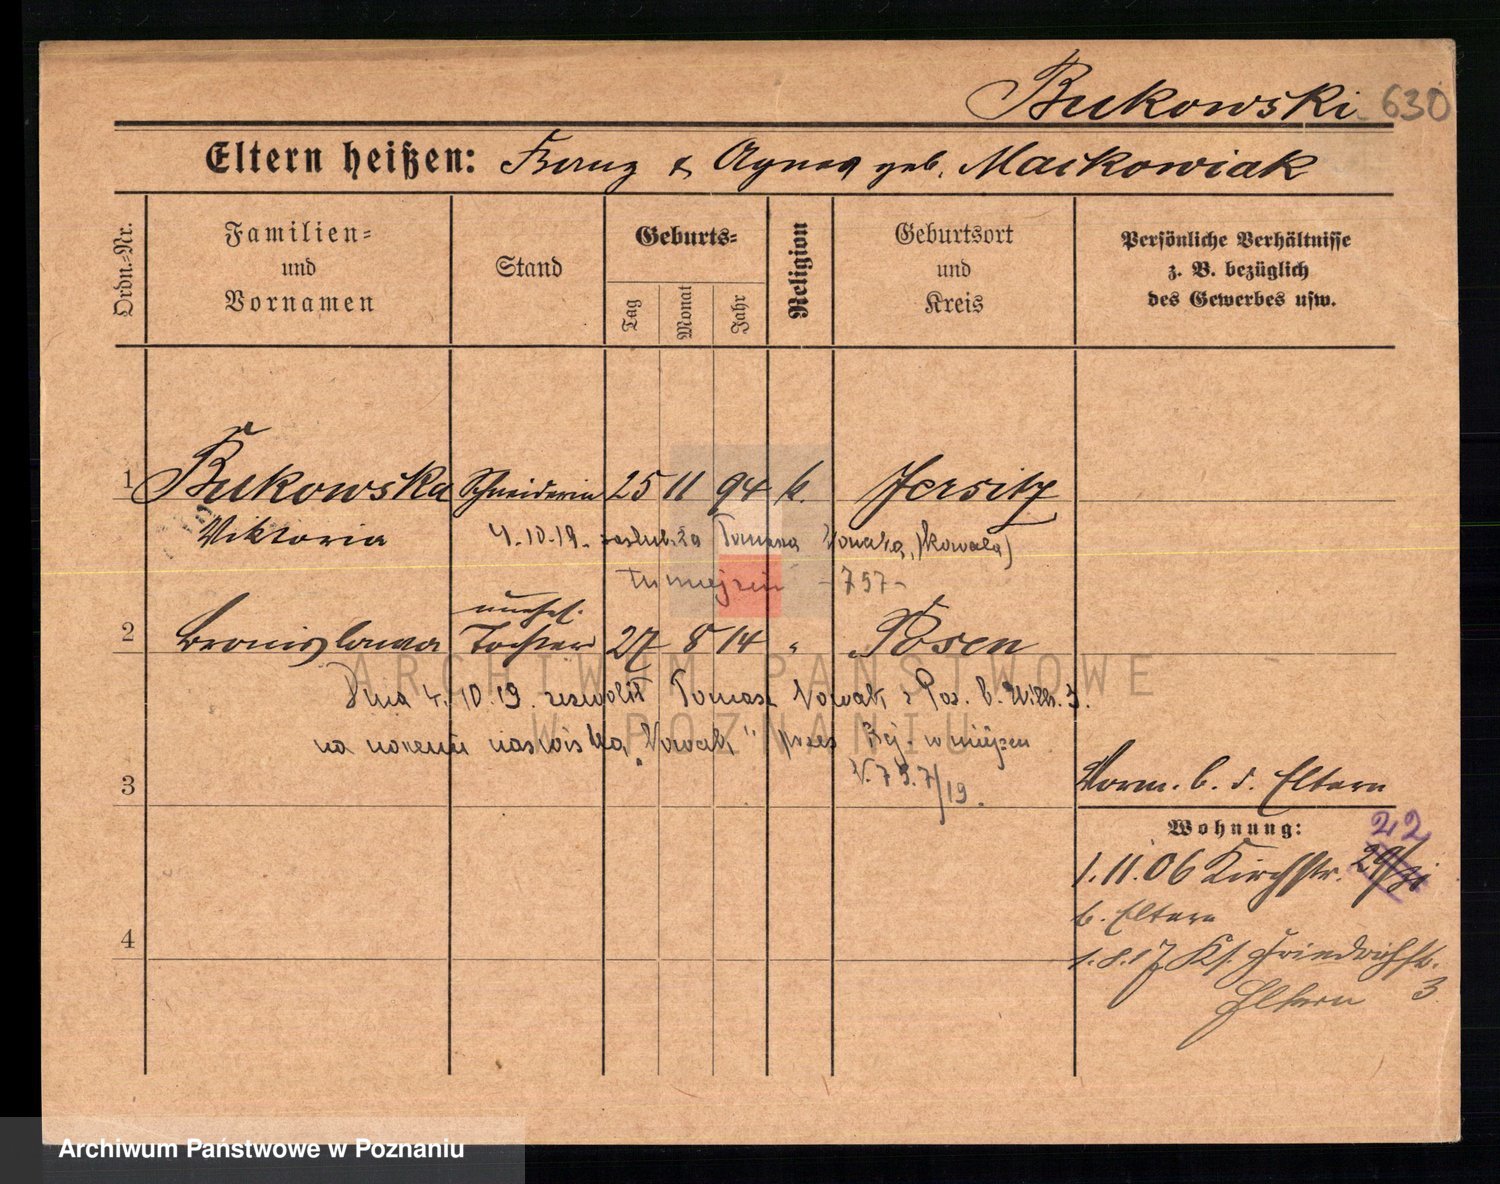 Bukowski 630
Eltern heißen: Franz & Agnes geb. Maćkowiak
Ordn.-Nr.
Familien-
und
Vornamen
Stand
Geburts-
Tag
Monat
Jahr
Religion
Geburtsort
und
Kreis
Persönliche Verhältnisse
z. B. bezüglich
des Gewerbes usw.
1 Bukowska Schneiderin 25 11 94 k. Jersitz
Viktoria 4.10.19. zaślub. za Tomasza Nowaka, (kowala)
tumiejszim -757-
unehel.
2 Bronislawa Tochter 27 8 14 " Posen
Dnia 4.10.19. zezwolił Tomasz Nowak z Poz. b. 3.
na noszenie nazwiska "Nowak" przez Rej. w miejscu
N. 757/19.
3
Vorm. b. d. Eltern
Wohnung:
1.11.06 Kirchstr. 29 22
b. Eltern
1.8.17 Ks. Friedrichstr. 3
Eltern
4
ARCHIWUM PAŃSTWOWE
W POZNANIU
Archiwum Państwowe w Poznaniu